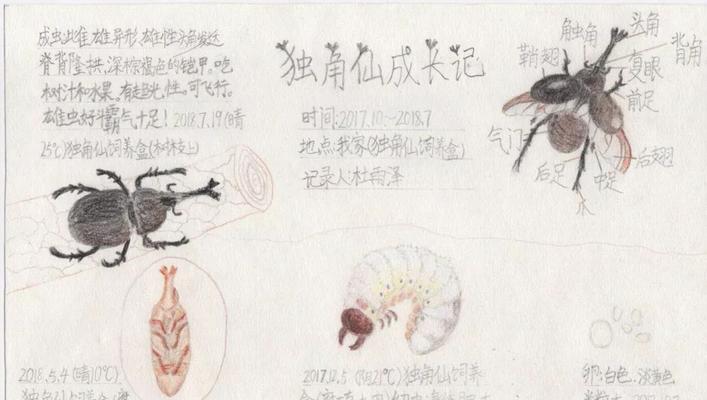 成虫出雌雄异形,雄性头角发达
脊背隆拱,深棕褐色的铠甲。吃
树汁和水果。有趋光性。可飞行。
雄虫好斗霸气十足！2018.7.19(晴
25℃)独角仙饲养盒(木树枝上)
独角仙成长记
时间:2017.10.~2018.7
地点:我家(独角仙饲养盒)
记录人:杜雨泽
头角
触角
背角
鞘翅
复眼
前足
气门
后翅
后足
中足
爪
2018.5.4(晴10℃)
独角仙饲养盒
2017.12.5(阴21℃)独角仙饲养
卵:白色.淡黄色
米粒大